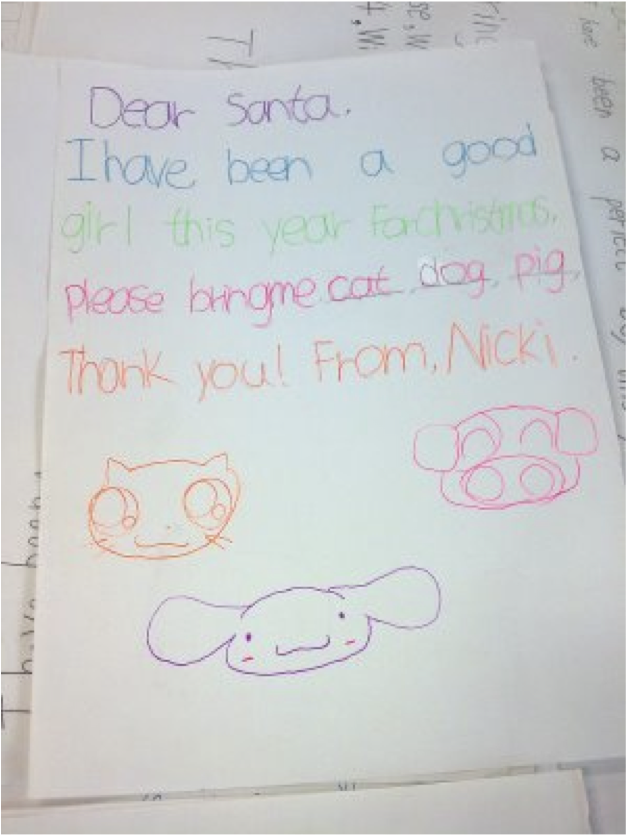 Dear Santa.
I have been a good
girl this year For christmas,
please bring me cat, dog, pig,
Thank you! From, Nicki.
have been a perfect
I have been